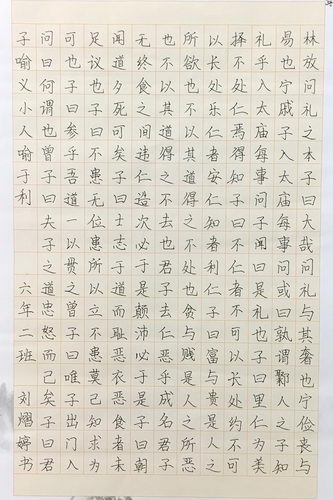 林放问礼之本子曰大哉问礼与其奢也宁俭丧与
易也宁戚子入太庙每事问或曰孰谓鄹人之子知
礼乎入太庙每事问子闻曰是礼也子曰里仁为美
择不处仁焉得知子曰不仁者不可以长处约不可
以长处乐仁者安仁知者利仁子曰富与贵是人之
所欲也不以其道得之不处也贫与贱是人之所恶
也不以其道得之不去也君子去仁恶乎成名君子
无终食之间违仁造次必于是颠沛必于是子曰朝
闻道夕死可矣子曰士志于道而耻恶衣恶食者未
足议也子曰不患无位患所以立不患莫己知求为
可也子曰参乎吾道一以贯之曾子曰唯子出门人
问曰何谓也曾子曰夫子之道忠恕而已矣子曰君
子喻义小人喻于利 六年二班 刘熠婷书